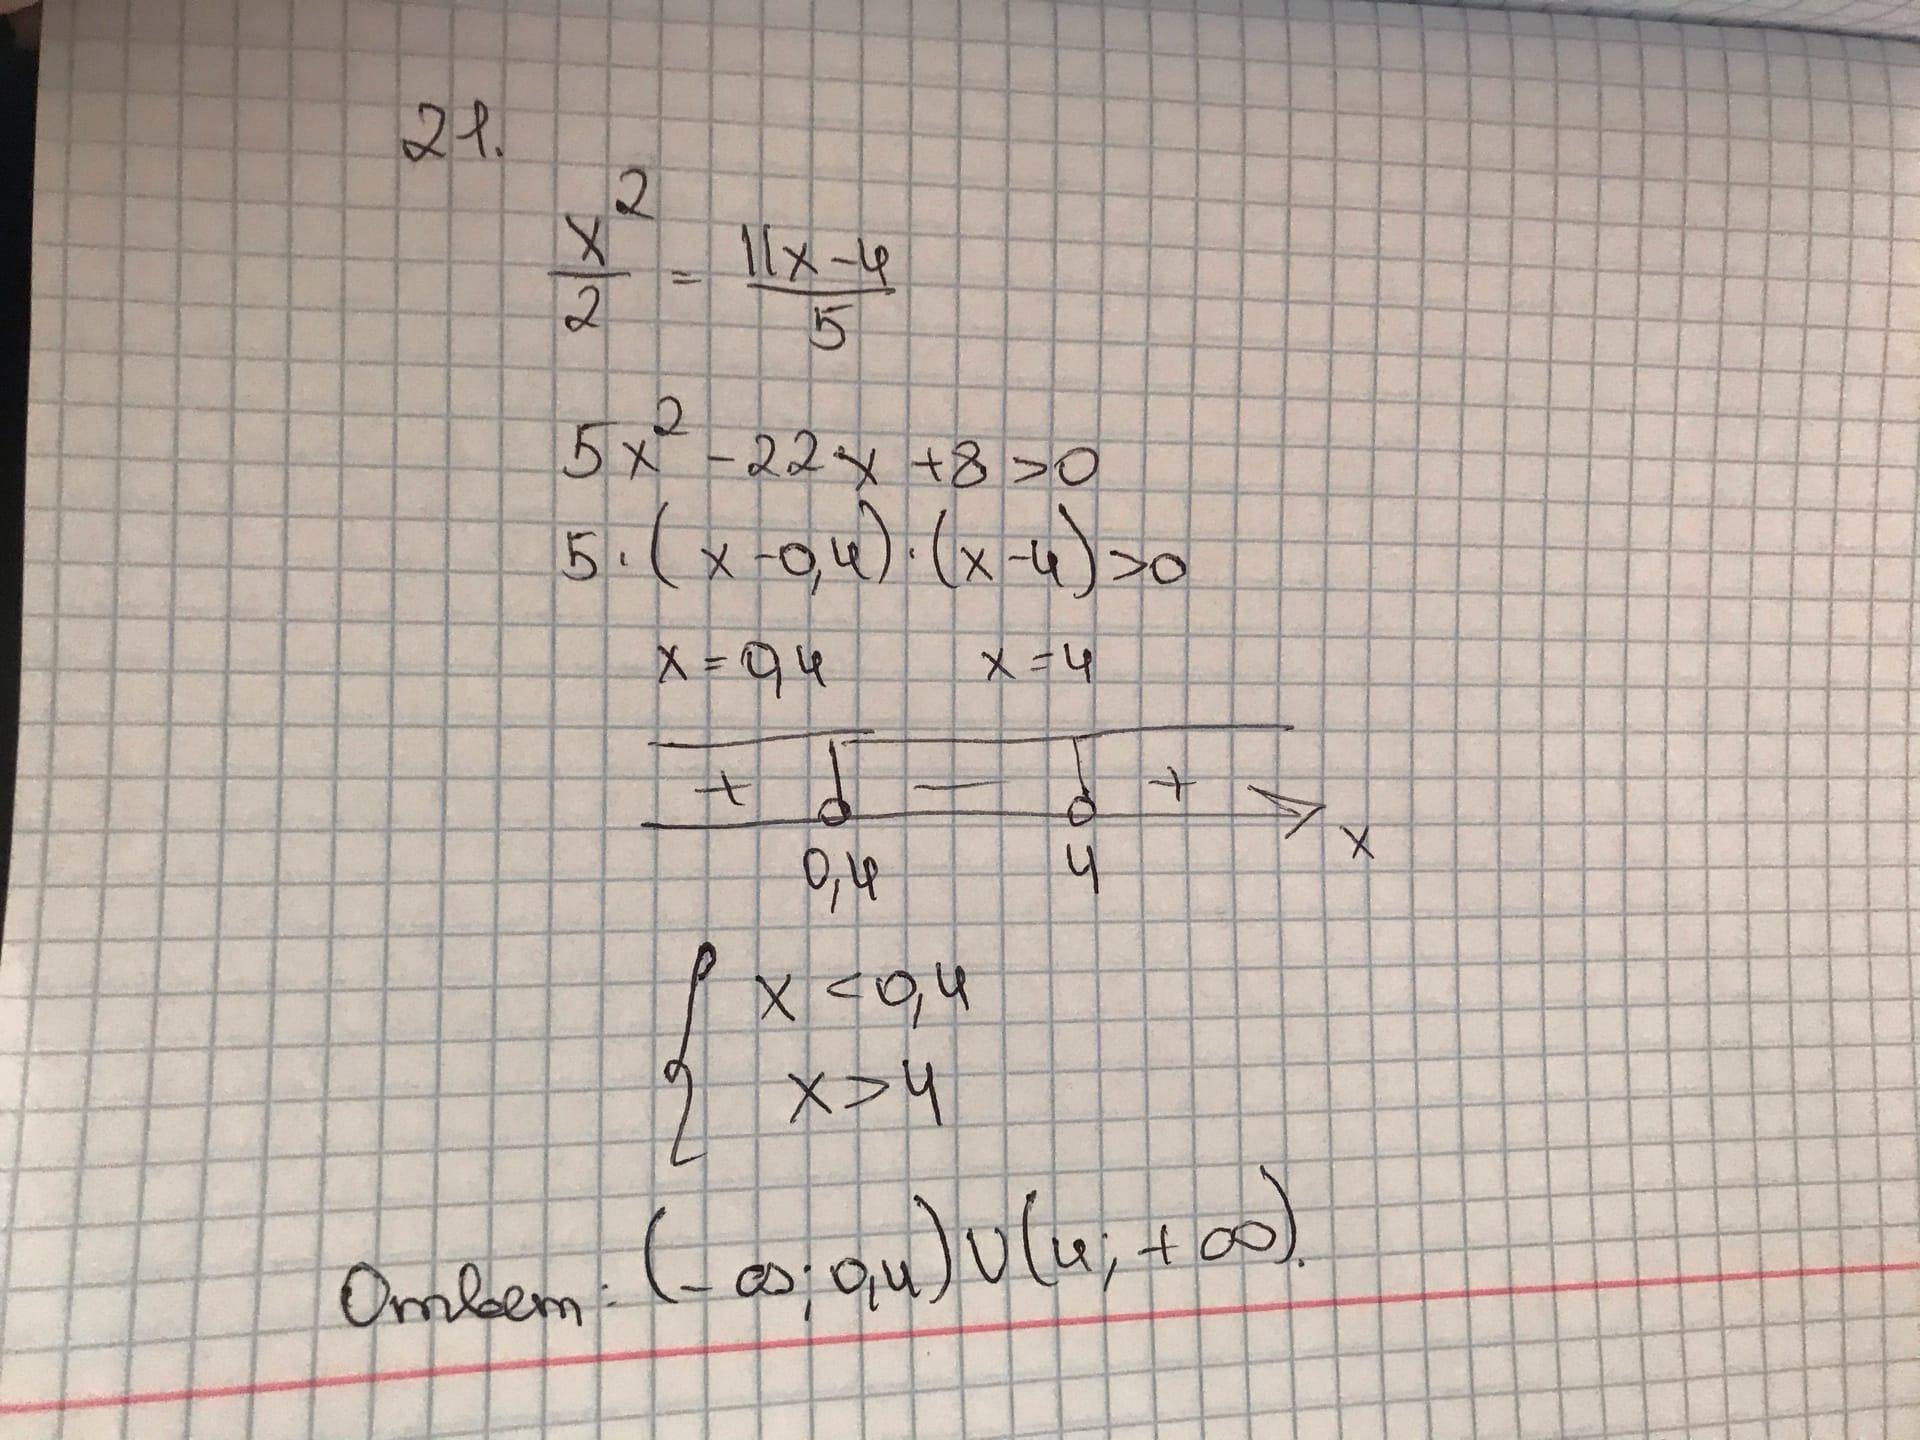 21.
x²/2 = 11x-4/5
5x² -22x +8 >0
5·(x-0,4)·(x-4)>0
x=0,4 x=4
+ − +
0,4 4 x
{ x<0,4
x>4
Ответ: (-∞; 0,4)∪(4; +∞).